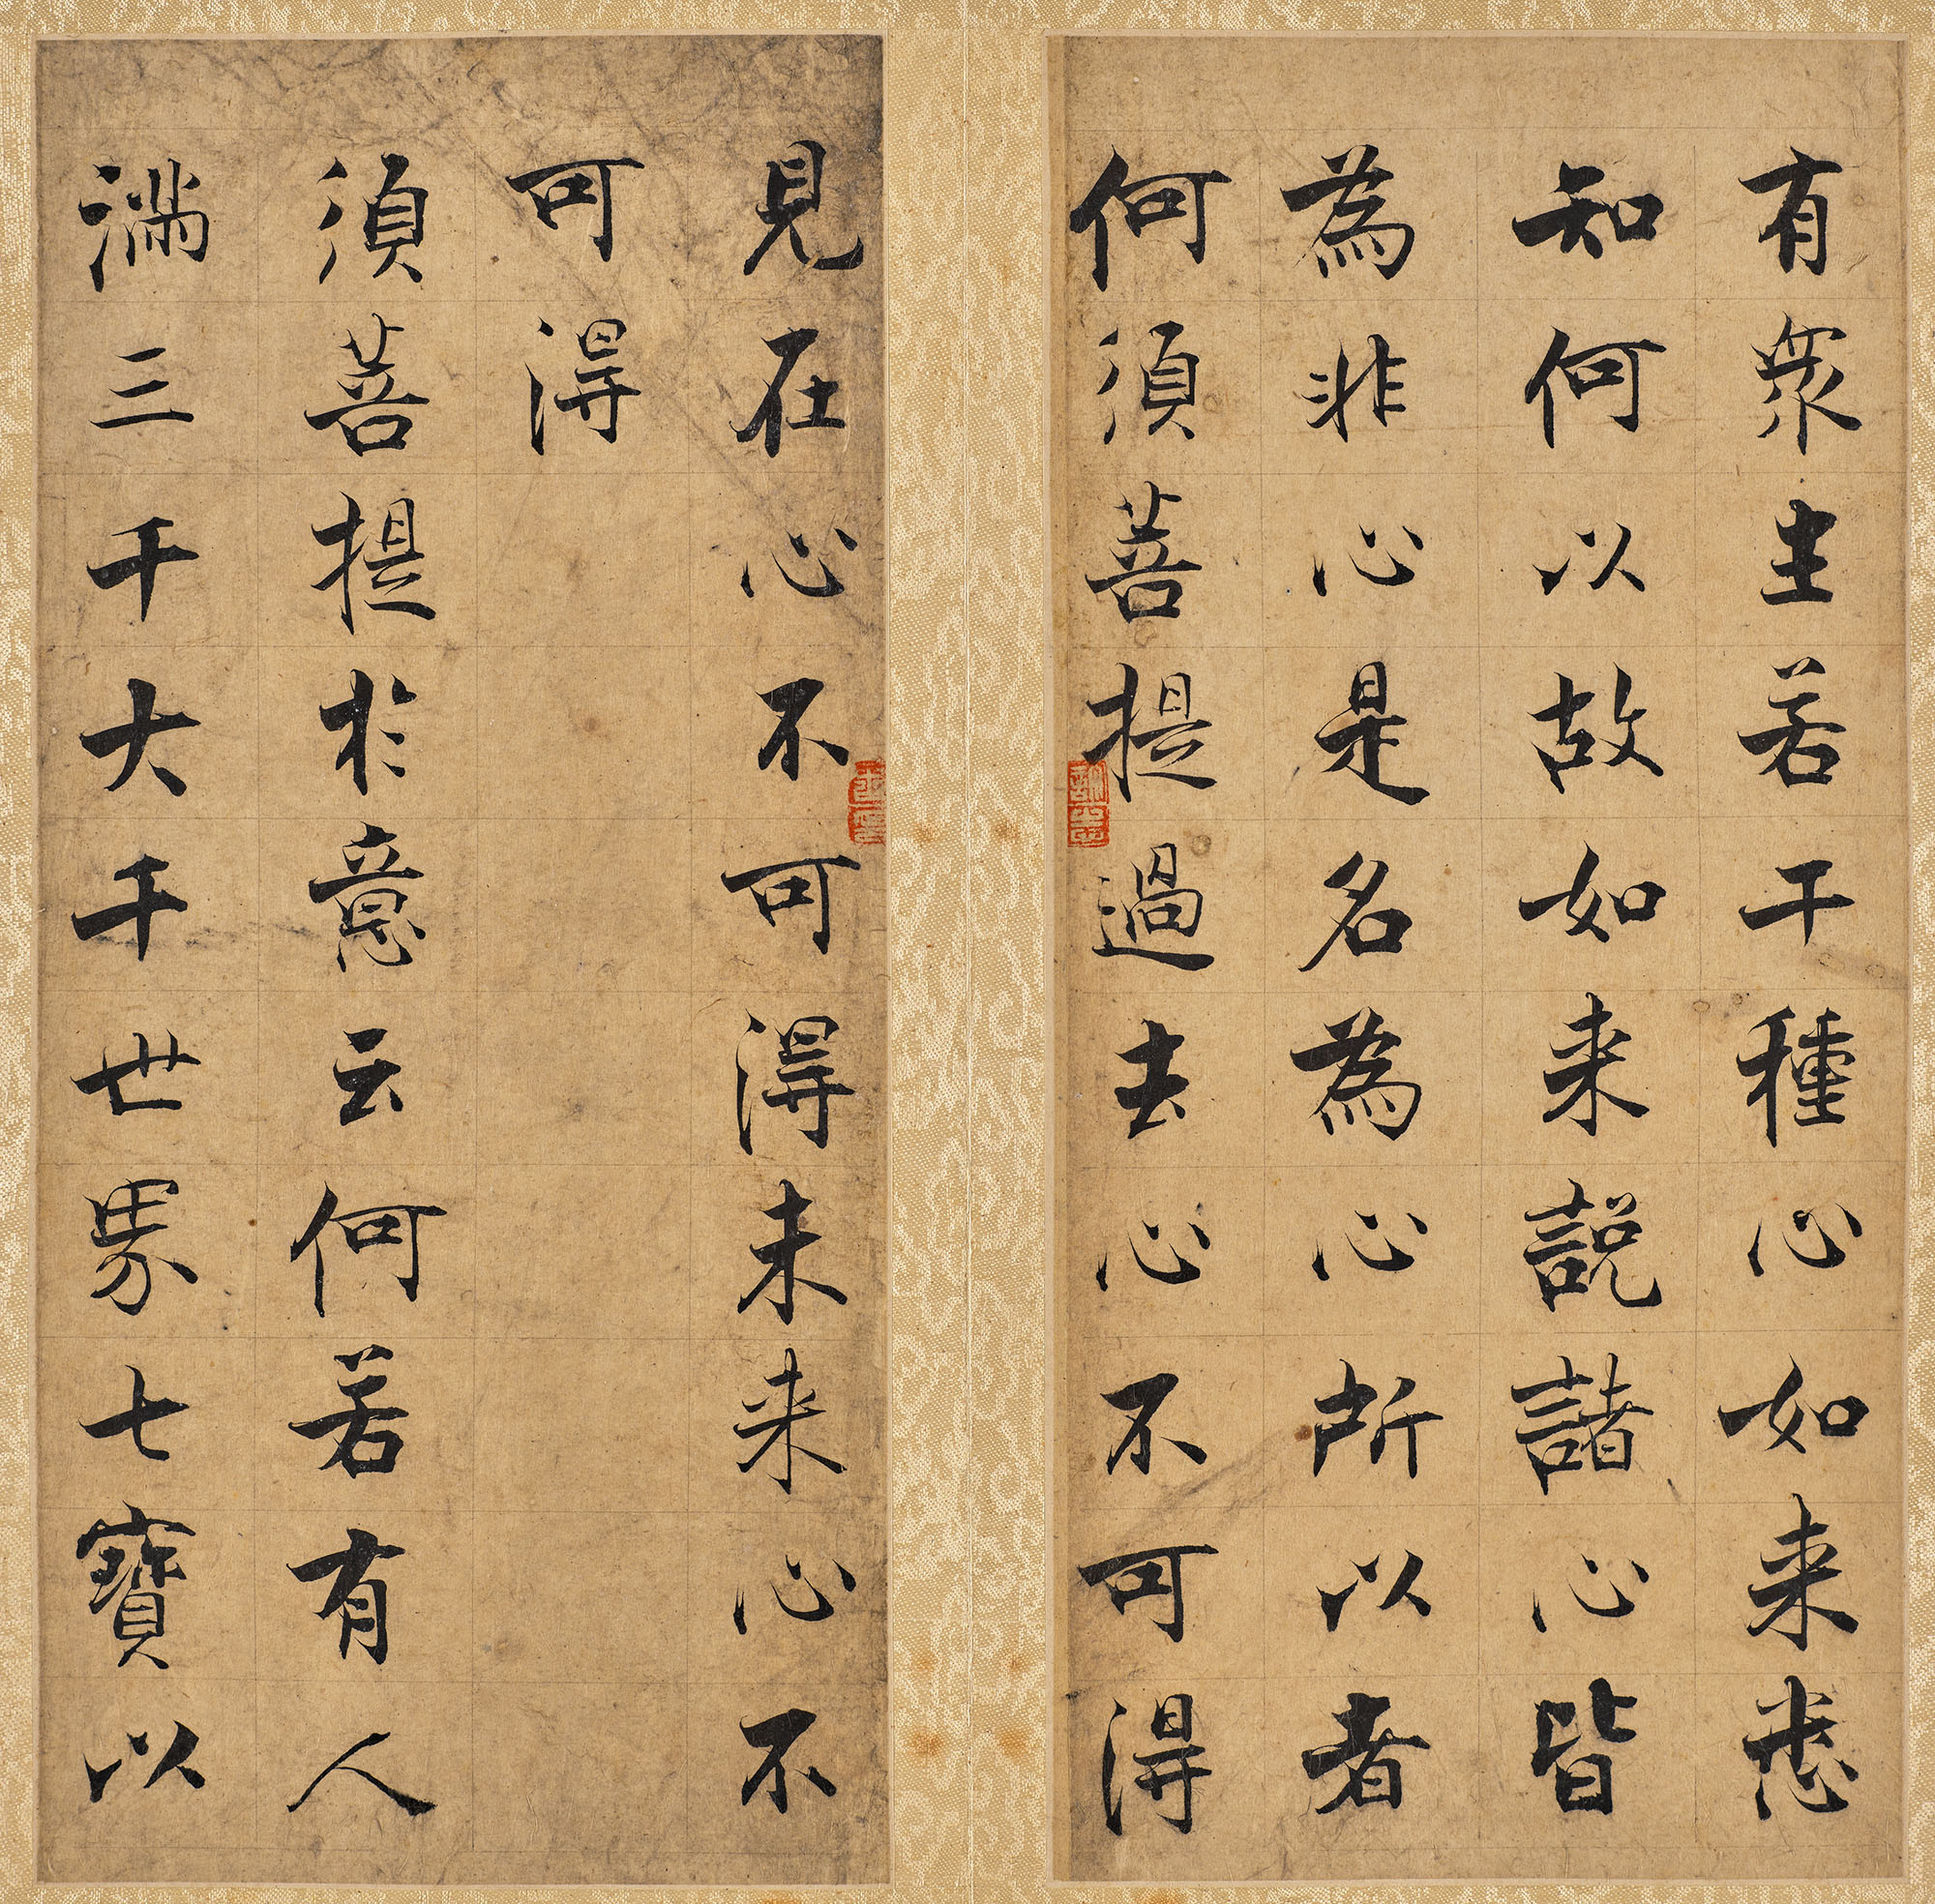 有衆生若干種心如来悉
知何以故如来説諸心皆
為非心是名為心所以者
何須菩提過去心不可得
見在心不可得未来心不
可得
須菩提於意云何若有人
満三千大千世界七寶以